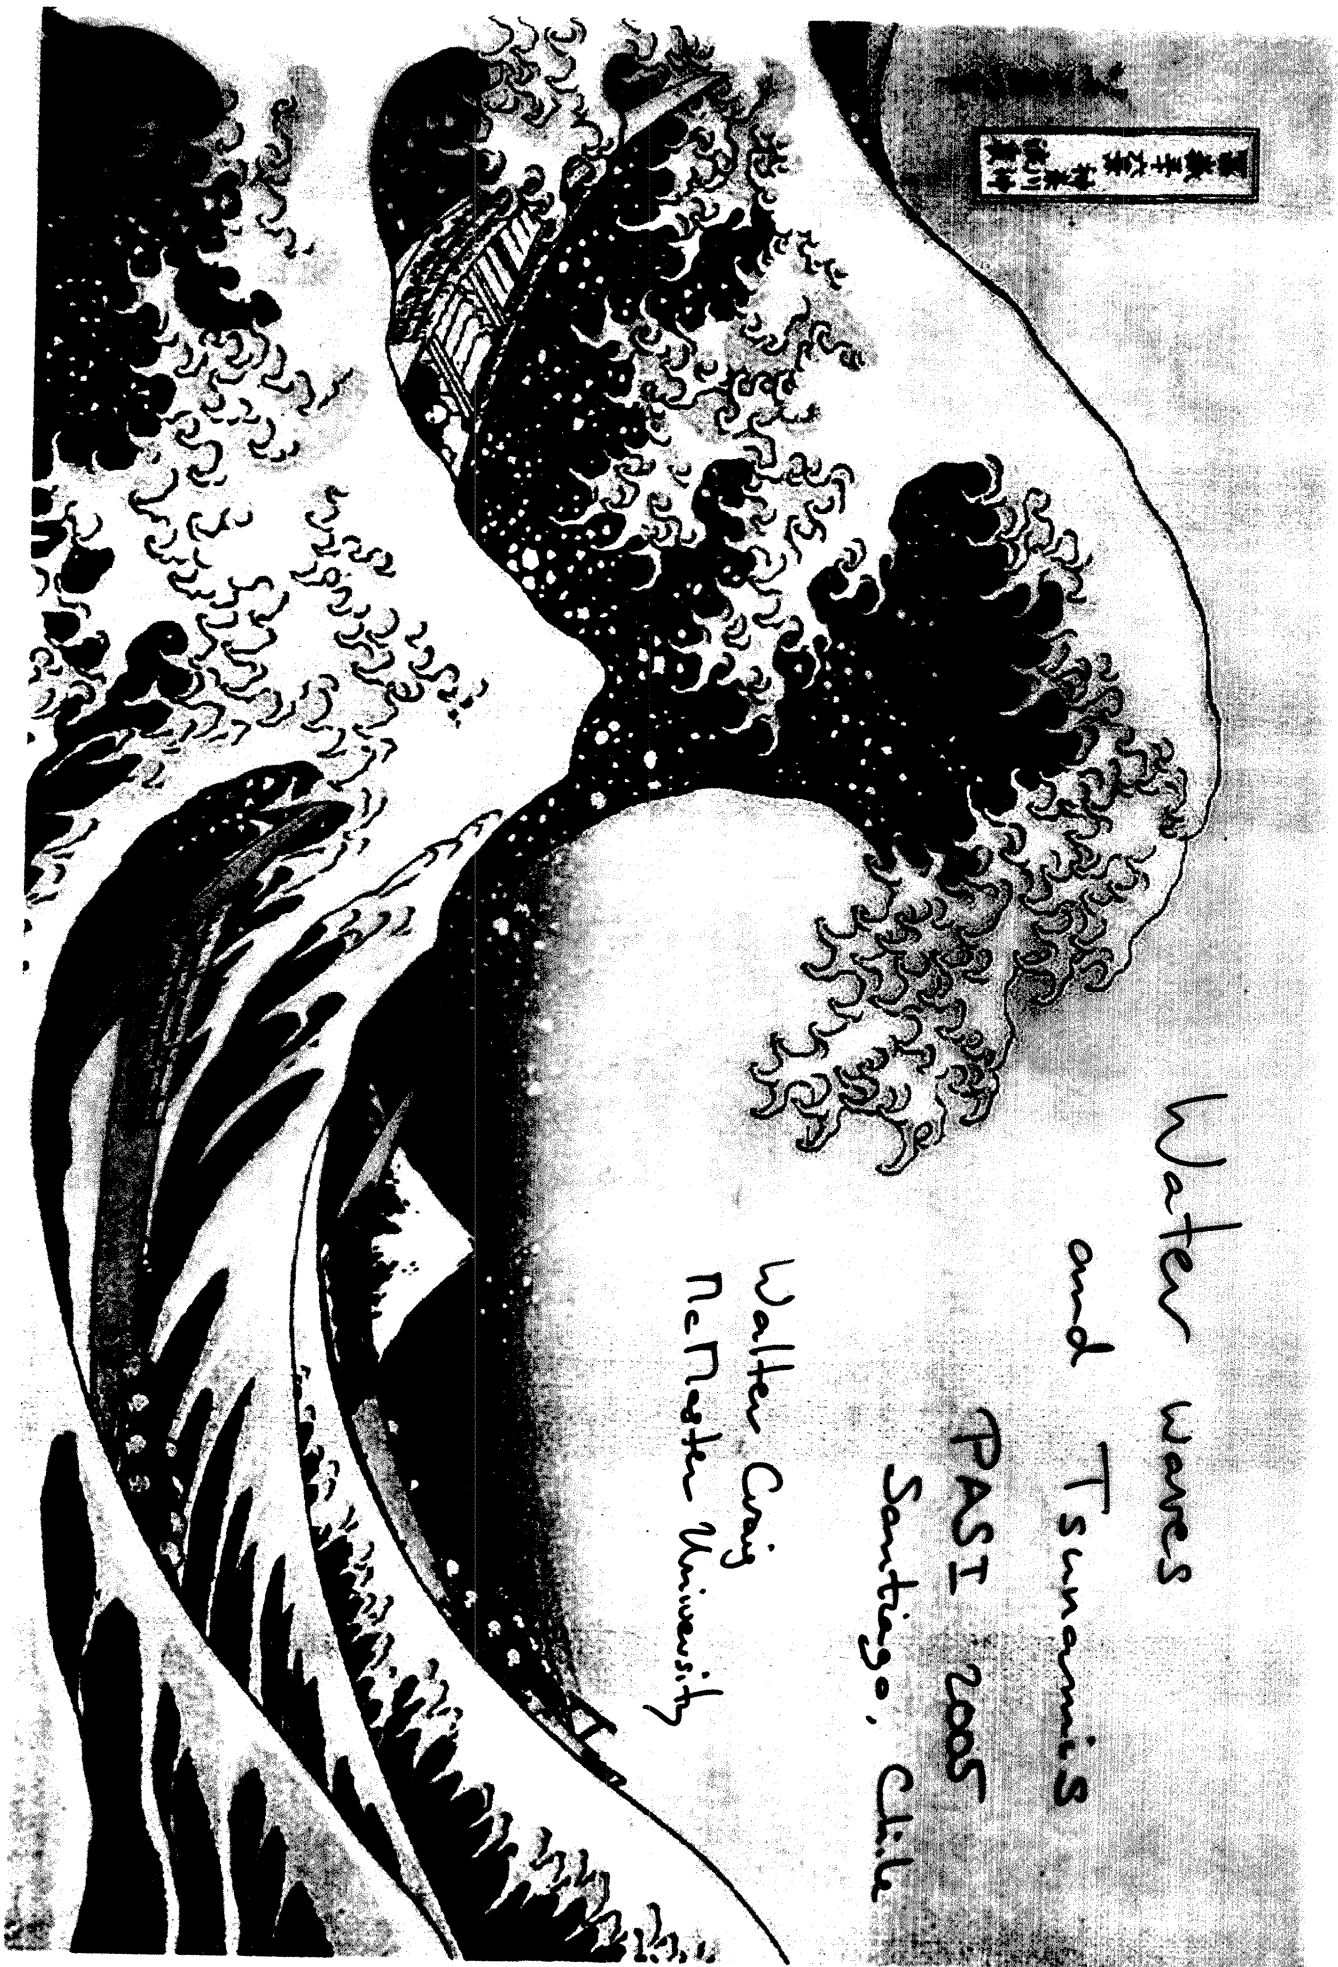 Water waves
and Tsunamis
PASI - 2005
Santiago, Chile
Walter Craig
McMaster University